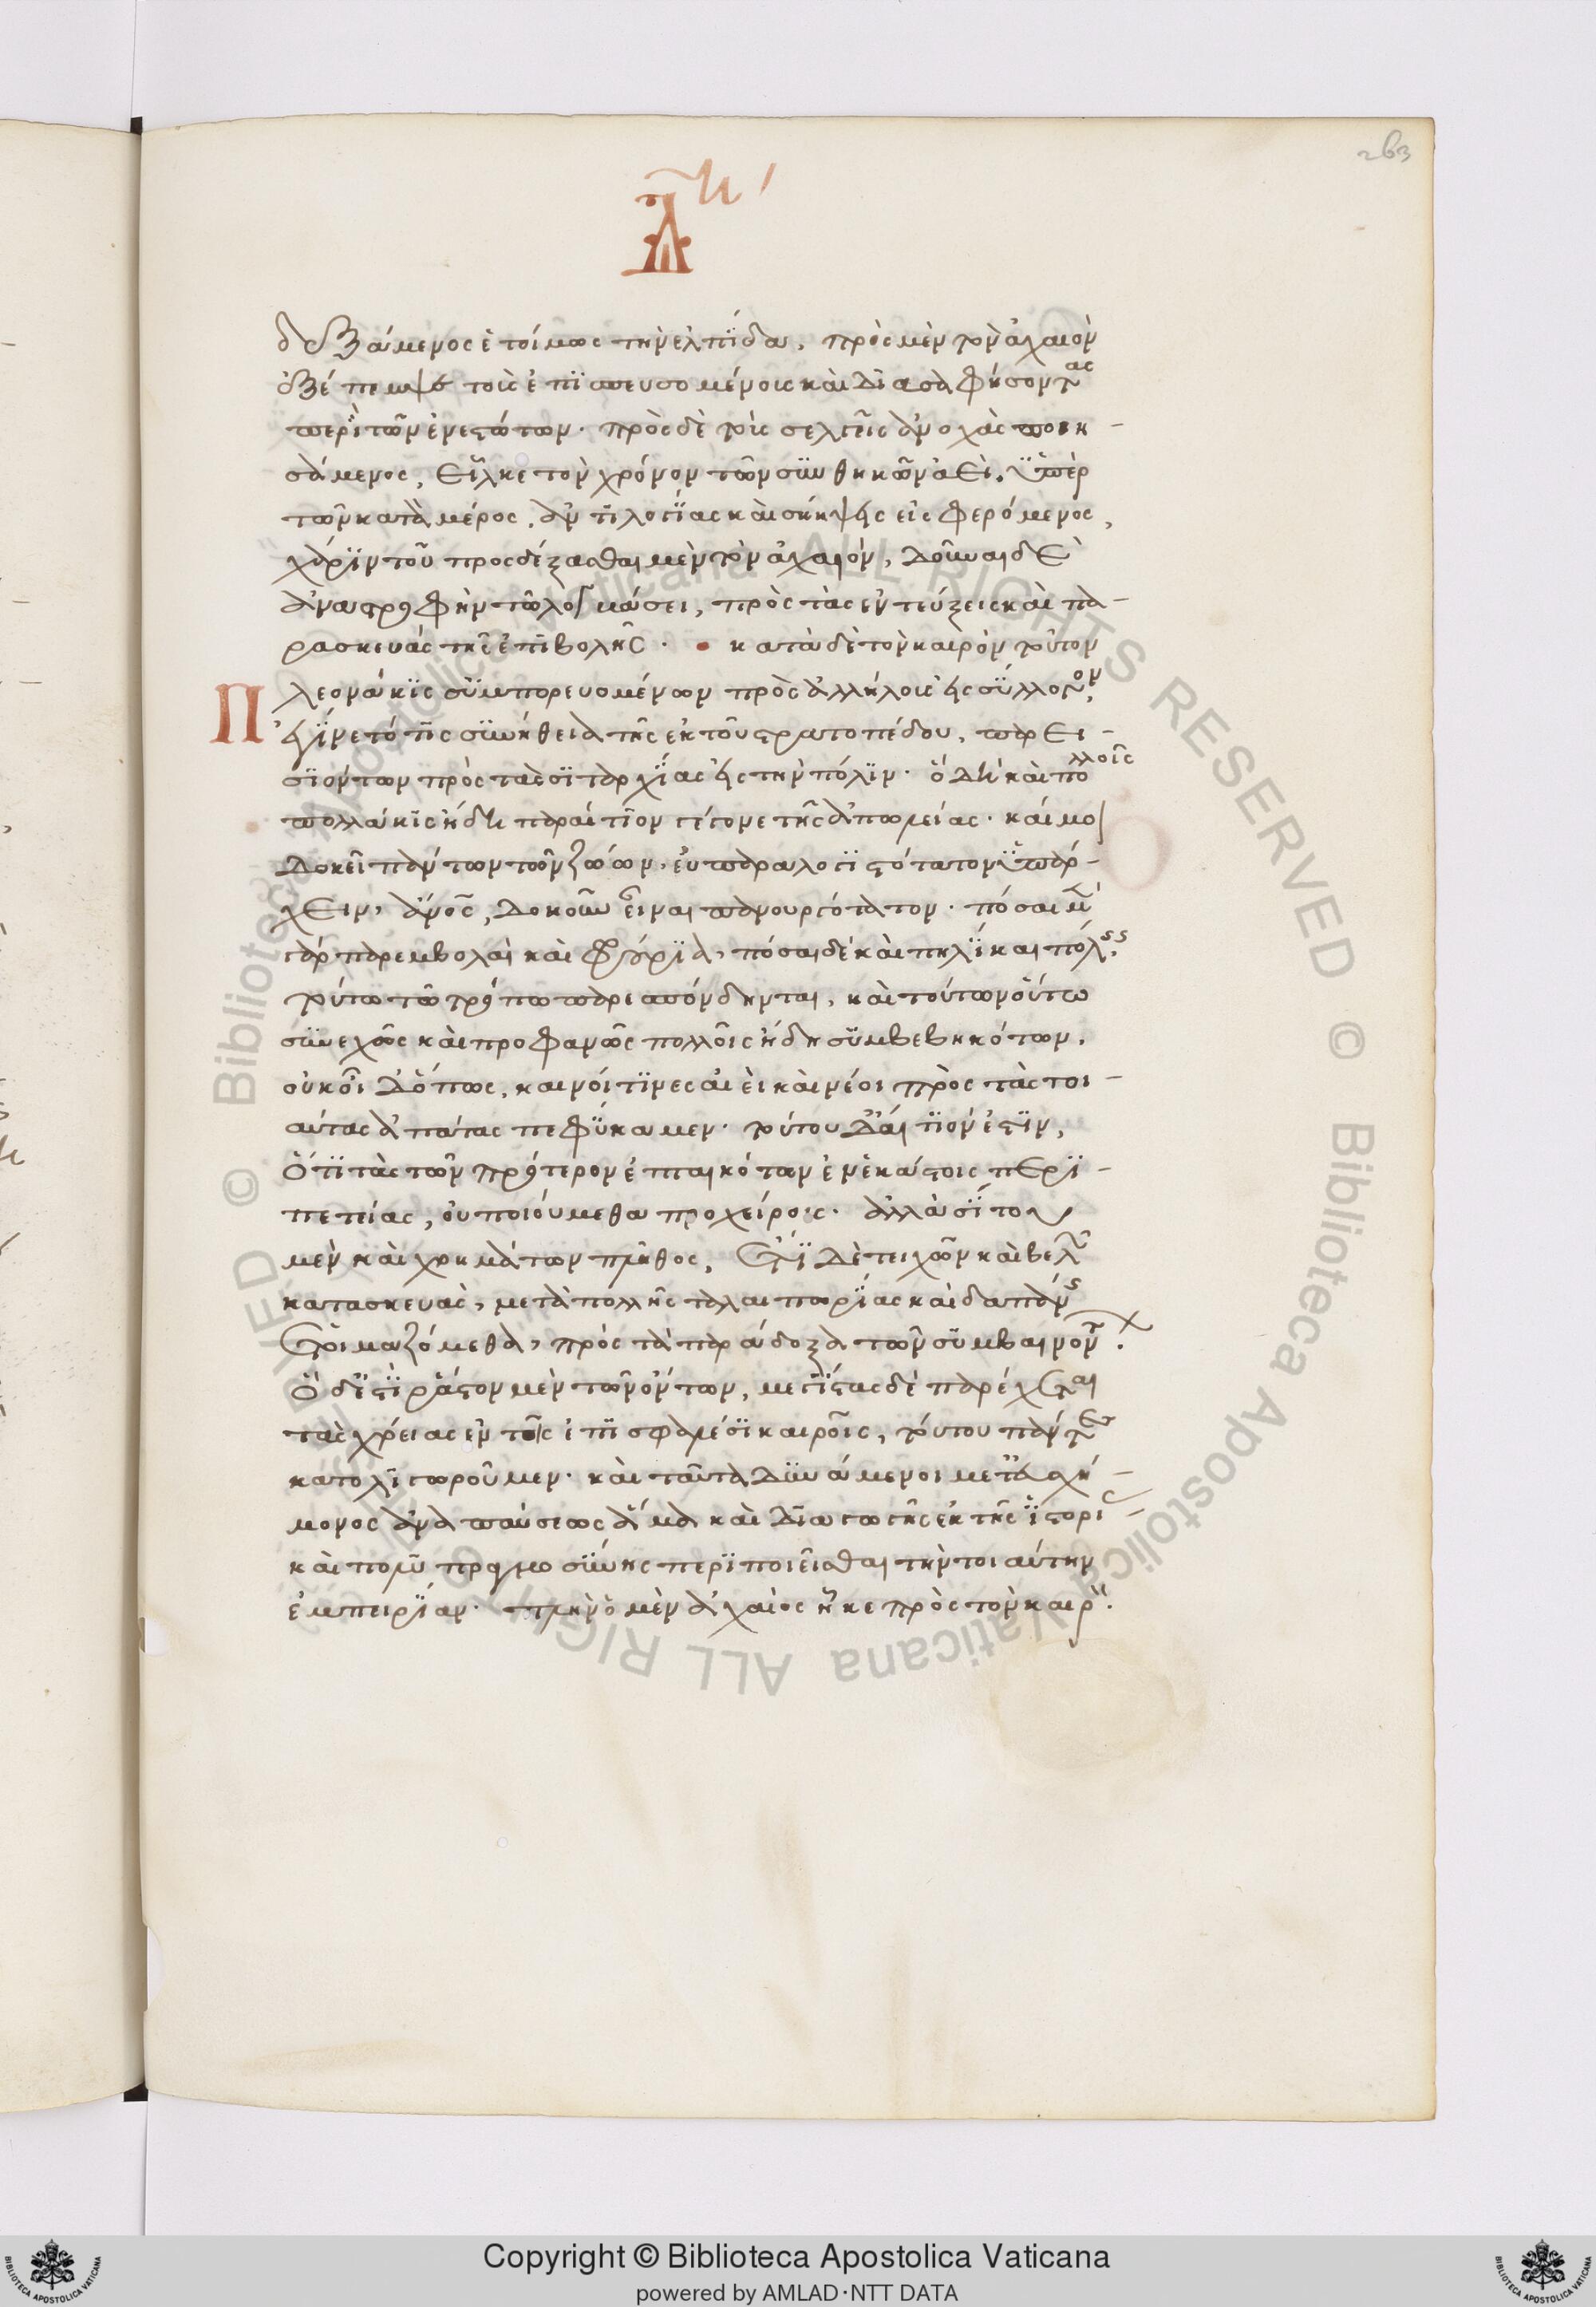 δεξάμενος ἑτοίμως τὴν ἐλπίδα, πρὸς μὲν τὸν ἀχαιὸν
ἐξέπεμψε τοὺς ἐπισπευσομένους καὶ διασαφήσοντας
περὶ τῶν ἐνεστώτων· πρὸς δὲ τοὺς σελγεῖς ἀνοχὰς ποιη-
σάμενος, εἷλκε τὸν χρόνον τῶν συνθηκῶν ἀεὶ. ὑπὲρ
τῶν κατὰ μέρος, ἀντιλογίας καὶ σκήψεις εἰσφερόμενος,
χάριν τοῦ προσδέξασθαι μὲν τὸν ἀχαιόν, δοῦναι δὲ
ἀναστροφὴν τῶ λογμάσει, πρὸς τὰς ἐντεύξεις καὶ πα-
ρασκευὰς τῆς ἐπιβολῆς · κατὰ δὲ τὸν καιρὸν τοῦτον
Πλεονάκις συμπορευομένων πρὸς ἀλλήλους εἰς σύλλογον,
ἐγίνετό τις συνήθεια τῆς ἐκ τοῦ στρατοπέδου, παρει-
σιόντων πρὸς τὰς σιταρχίας εἰς τὴν πόλιν· ὃ δὴ καὶ πολλοῖς
πολλάκις ἤδη παραίτιον γέγονε τῆς ἀπωλείας· καί μοι
δοκεῖ πάντων τῶν ζώων, εὐπαραλογιστότατον ὑπάρ-
χειν, ἄνος, δοκοῦν εἶναι πανουργότατον· πόσαι μὲν
γὰρ παρεμβολαὶ καὶ φρούρια, πόσαι δὲ καὶ πηλίκαι πόλεις,
τούτω τῶ τρόπω παρεσπόνδηνται, καὶ τούτων οὕτω
συνεχῶς καὶ προφανῶς πολλοῖς ἤδη συμβεβηκότων,
οὐκ οἶδ' ὅπως, καινοί τινες αἰεὶ καὶ νέοι πρὸς τὰς τοι-
αύτας ἀπάτας πεφύκαμεν· τούτου δ' αἴτιόν ἐστιν,
Ὅτι τὰς τῶν πρότερον ἐπταικότων ἐν ἑκάστοις περι-
πετείας, οὐ ποιούμεθα προχείρους. ἀλλὰ σίτου
μὲν καὶ χρημάτων πλῆθος, ἔτι δὲ τειχῶν καὶ βελῶν
κατασκευὰς, μετὰ πολλῆς ταλαιπωρίας καὶ δαπάνης
ἑτοιμαζόμεθα, πρὸς τὰ παράδοξα τῶν συμβαινόντων.
Ὃ δ' ἐστὶ ῥᾷστον μὲν τῶν ὄντων, μεγίστας δὲ παρέχεται
τὰς χρείας ἐν τοῖς ἐπισφαλέσι καιροῖς, τούτου πάντες
κατολιγωροῦμεν· καὶ ταῦτα δυνάμενοι μετ' εὐσχή-
μονος ἀναπαύσεως ἅμα καὶ διαγωγῆς ἐκ τῆς ἱστορίας
καὶ πολυπραγμοσύνης περιποιεῖσθαι τὴν τοιαύτην
ἐμπειρίαν· πλὴν ὁ μὲν ἀχαιὸς ἧκε πρὸς τὸν καιρόν.